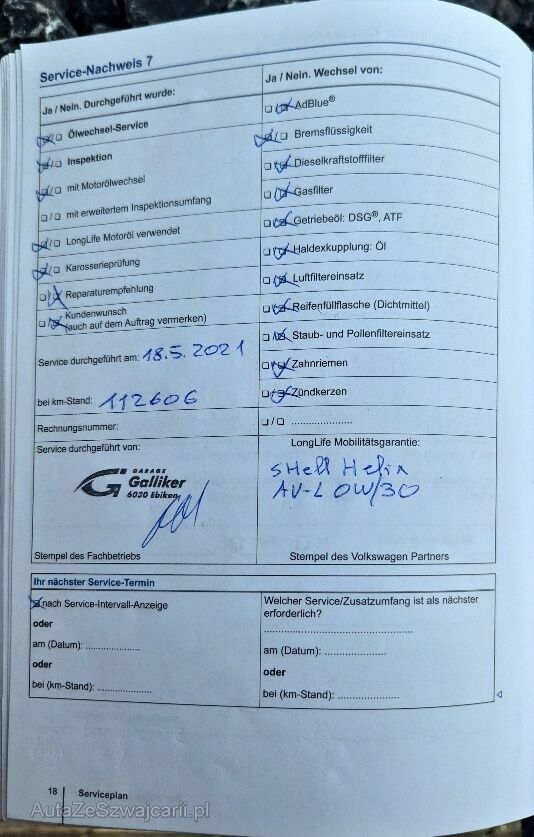 Service-Nachweis 7
Ja / Nein. Durchgeführt wurde:
☒/☐ Ölwechsel-Service
☒/☐ Inspektion
☒/☐ mit Motorölwechsel
☐/☐ mit erweitertem Inspektionsumfang
☒/☐ LongLife Motoröl verwendet
☒/☐ Karosserieprüfung
☐/☒ Reparaturempfehlung
☐/☒ Kundenwunsch
(auch auf dem Auftrag vermerken)
Service durchgeführt am: 18.5.2021
bei km-Stand: 112606
Rechnungsnummer:
Service durchgeführt von:
GARAGE
Galliker
6030 Ebikon
Stempel des Fachbetriebs
Ja / Nein. Wechsel von:
☐/☒ AdBlue®
☒/☐ Bremsflüssigkeit
☐/☒ Dieselkraftstofffilter
☐/☒ Gasfilter
☐/☒ Getriebeöl: DSG®, ATF
☐/☒ Haldexkupplung: Öl
☐/☒ Luftfiltereinsatz
☐/☒ Reifenfüllflasche (Dichtmittel)
☐/☒ Staub- und Pollenfiltereinsatz
☐/☒ Zahnriemen
☐/☒ Zündkerzen
☐/☐ .....................
LongLife Mobilitätsgarantie:
SHell Helix
AV-L 0W/30
Stempel des Volkswagen Partners
Ihr nächster Service-Termin
☒ nach Service-Intervall-Anzeige
oder
am (Datum): ...................
oder
bei (km-Stand): ...................
Welcher Service/Zusatzumfang ist als nächster
erforderlich?
..................................................
am (Datum): .....................
oder
bei (km-Stand): .....................
18 Serviceplan
AutaZeSzwajcarii.pl